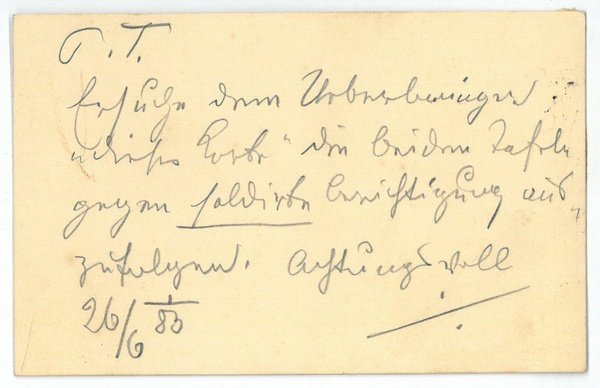 P. T.
Ersuche dem Ueberbringer
„dieser Karte“ die beiden Tafeln
gegen saldirte Berichtigung aus
zufolgen. Achtungsvoll
26/6 83